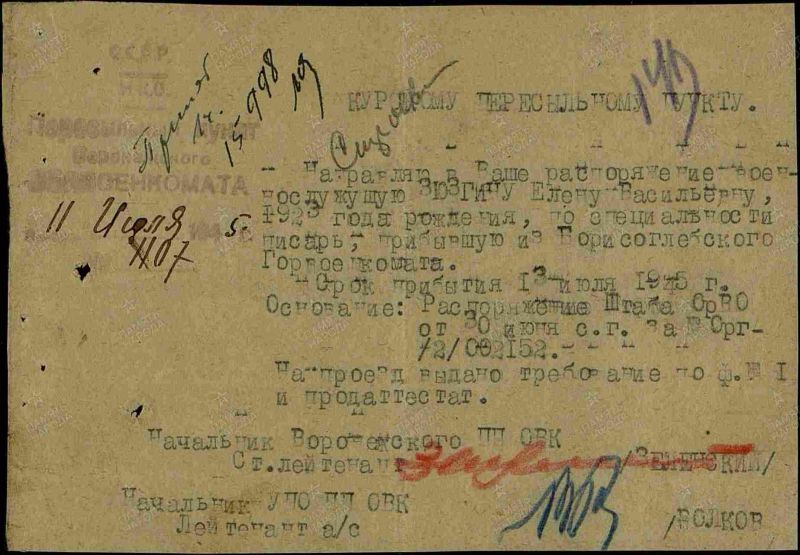 СССР
НКО
Пересыльный пункт
Воронежского
ОБЛВОЕНКОМАТА
11 Июля 194 5.
1107
Принят
14.
15-998
КУРСКОМУ ПЕРЕСЫЛЬНОМУ ПУНКТУ.
Направляю в Ваше распоряжение воен-
нослужущую ЗЮЗГИНУ Елену Васильевну,
1923 года рождения, по специальности
писарь, прибывшую из Борисоглебского
Горвоенкомата.
Срок прибытия 13 июля 1945 г.
Основание: Распоряжение Штаба ОрВО
от 30 июня с.г. за № Орг-
/2/002152.
На проезд выдано требование по ф.№ 1
и продаттестат.
Начальник Воронежского ПП ОВК
Ст.лейтенант /ЗЕМЕНСКИЙ/
Начальник УПО ПП ОВК
Лейтенант а/с /ВОЛКОВ